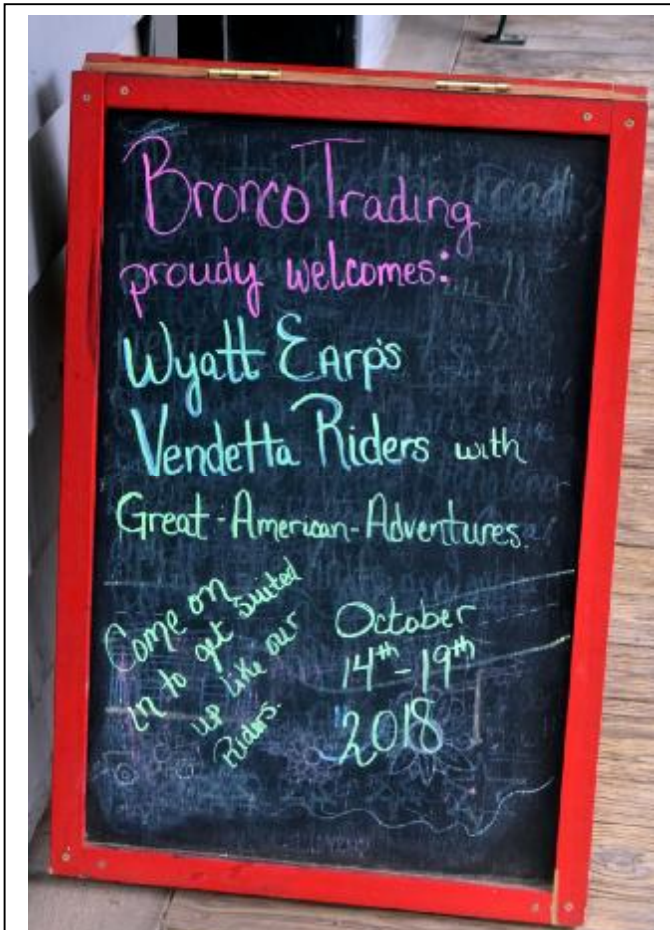 Bronco Trading
proudy welcomes:
Wyatt EArp's
Vendetta Riders with
Great-American-Adventures.
Come on
in to get suited
up like our
Riders.
October
14th-19th
2018